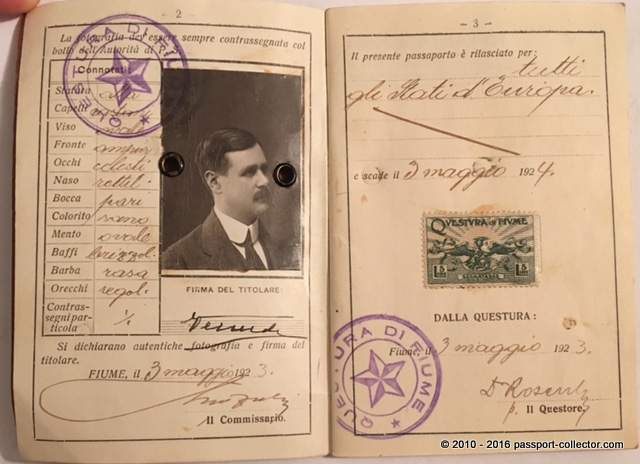 - 2 -
La fotografia dev'essere sempre contrassegnata col
bollo dell'Autorità di P. S.
QUESTURA DI FIUME
Connotati
Statura alta
Capelli
Viso ovale
Fronte ampia
Occhi celesti
Naso rettil.
Bocca pari
Colorito sano
Mento ovale
Baffi brizzol.
Barba rasa
Orecchi regol.
Contras-
segni par-
ticola
FIRMA DEL TITOLARE:
Si dichiarano autentiche fotografia e firma del
titolare.
FIUME, 3 maggio 1923.
Il Commissario.
- 3 -
Il presente passaporto è rilasciato per:
tutti
gli Stati d'Europa.
e scade il 3 maggio 1924.
QUESTURA DI FIUME
L. 5 L. 5
DALLA QUESTURA:
Fiume, 3 maggio 1923.
QUESTURA DI FIUME
p. Il Questore,
© 2010 - 2016 passport-collector.com